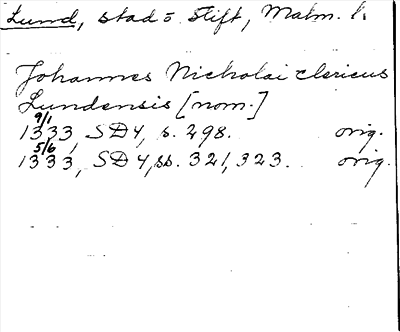 Lund, stad o stift, Malm. l.
Johannes Nicholai clericus
Lundensis [nom.]
9/1
1333, SD 4, s. 298. orig.
5/6
1333, SD 4, ss. 321, 323. orig.